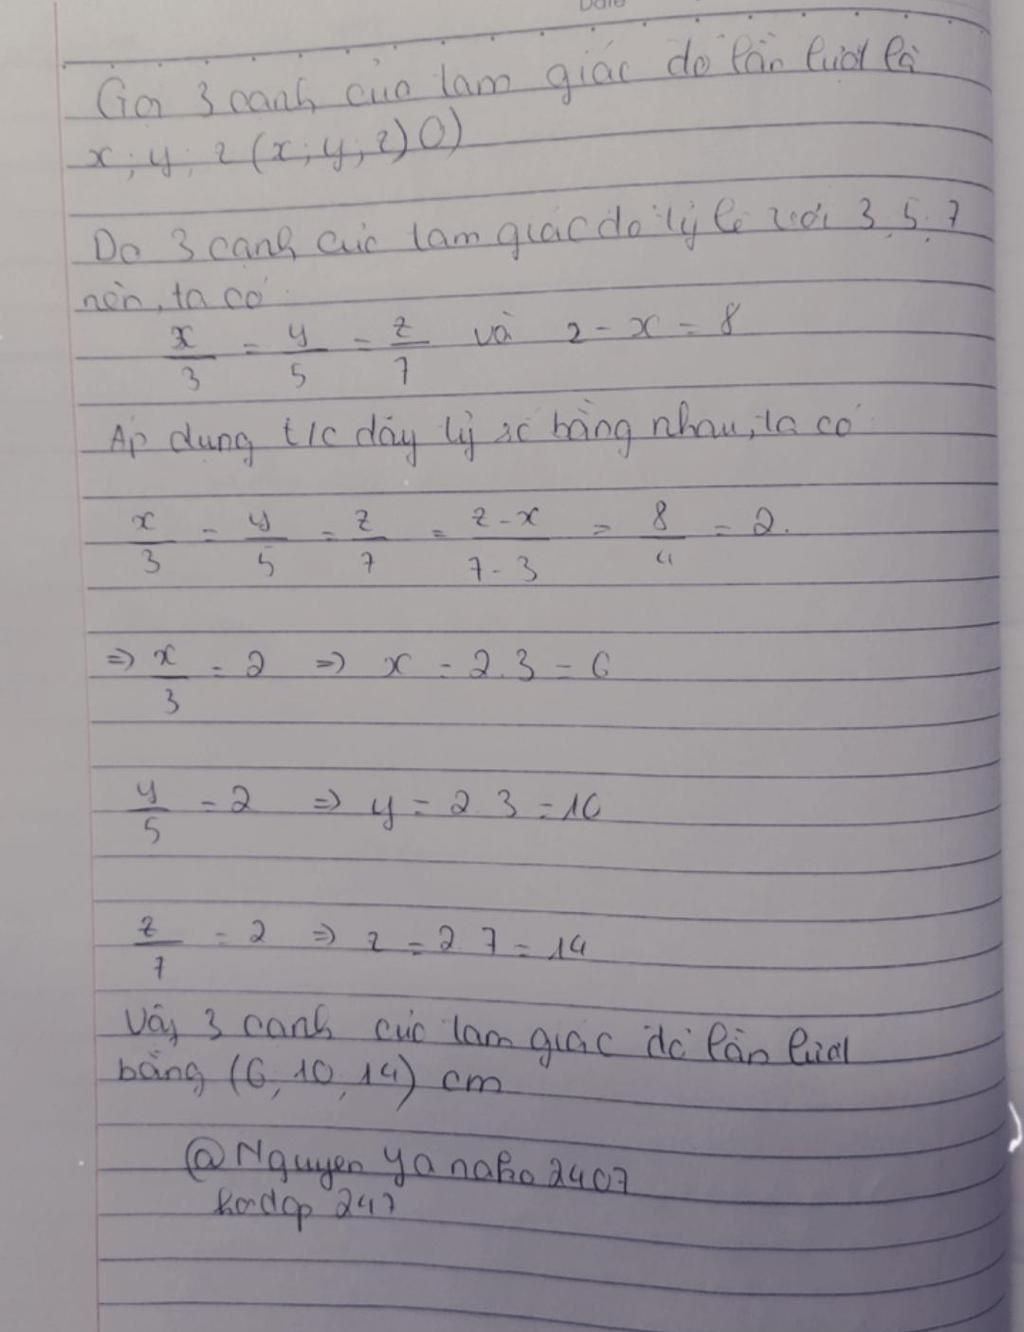 Date
Gọi 3 cạnh của tam giác đó lần lượt là
x; y; z (x; y; z > 0)
Do 3 cạnh của tam giác đó tỷ lệ với 3, 5, 7
nên, ta có:
x/3 = y/5 = z/7 và z - x = 8
Áp dụng t/c dãy tỷ số bằng nhau, ta có
x/3 = y/5 = z/7 = z-x/7-3 = 8/4 = 2.
=> x/3 = 2 => x = 2.3 = 6
y/5 = 2 => y = 2.3 = 10
z/7 = 2 => z = 2.7 = 14
Vậy 3 cạnh của tam giác đó lần lượt
bằng (6, 10, 14) cm
@Nguyen Yanako 2407
hoidap 247